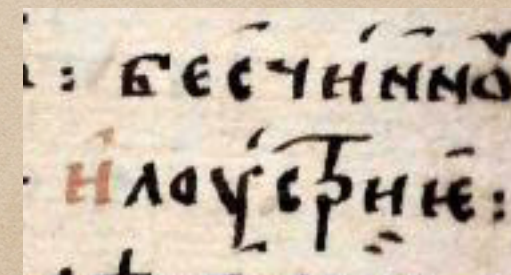 : бесчи́нно
и҆лоу́сⷮриѥ :